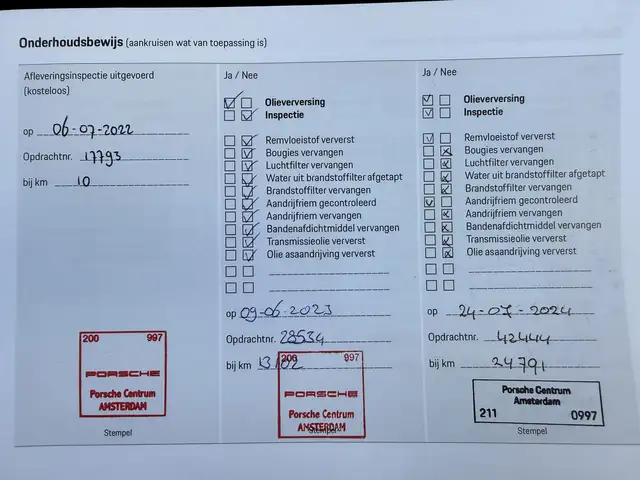 Onderhoudsbewijs (aankruisen wat van toepassing is)
Afleveringsinspectie uitgevoerd
(kosteloos)
op 06-07-2022
Opdrachtnr. 17793
bij km 10
200 997
PORSCHE
Porsche Centrum
AMSTERDAM
Stempel
Ja / Nee
Olieverversing
Inspectie
Remvloeistof ververst
Bougies vervangen
Luchtfilter vervangen
Water uit brandstoffilter afgetapt
Brandstoffilter vervangen
Aandrijfriem gecontroleerd
Aandrijfriem vervangen
Bandenafdichtmiddel vervangen
Transmissieolie ververst
Olie asaandrijving ververst
op 09-06-2023
Opdrachtnr. 28534
bij km 13102
200 997
PORSCHE
Porsche Centrum
AMSTERDAM
Stempel
Ja / Nee
Olieverversing
Inspectie
Remvloeistof ververst
Bougies vervangen
Luchtfilter vervangen
Water uit brandstoffilter afgetapt
Brandstoffilter vervangen
Aandrijfriem gecontroleerd
Aandrijfriem vervangen
Bandenafdichtmiddel vervangen
Transmissieolie ververst
Olie asaandrijving ververst
op 24-07-2024
Opdrachtnr. 42444
bij km 24791
Porsche Centrum
Amsterdam
211 0997
Stempel